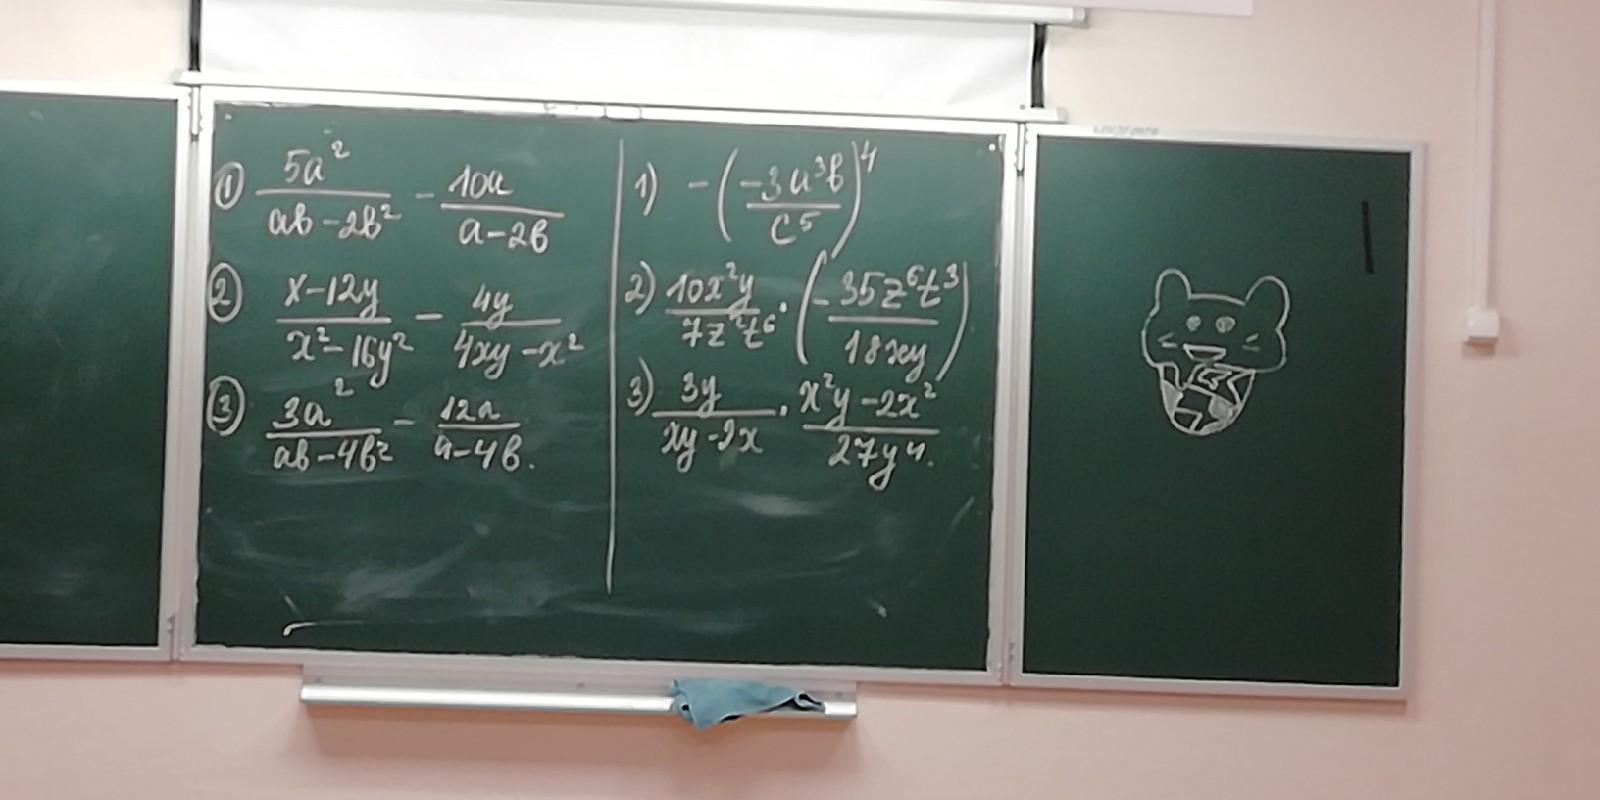 ① 5a²/(ab-2b²) - 10a/(a-2b)
② (x-12y)/(x²-16y²) - 4y/(4xy-x²)
③ 3a²/(ab-4b²) - 12a/(a-4b).
1) -(-3a³b/c⁵)⁴
2) 10x²y/(7z²t⁶) · (-35z⁶t³/(18xy))
3) 3y/(xy-2x) · (x²y-2x²)/(27y⁴).